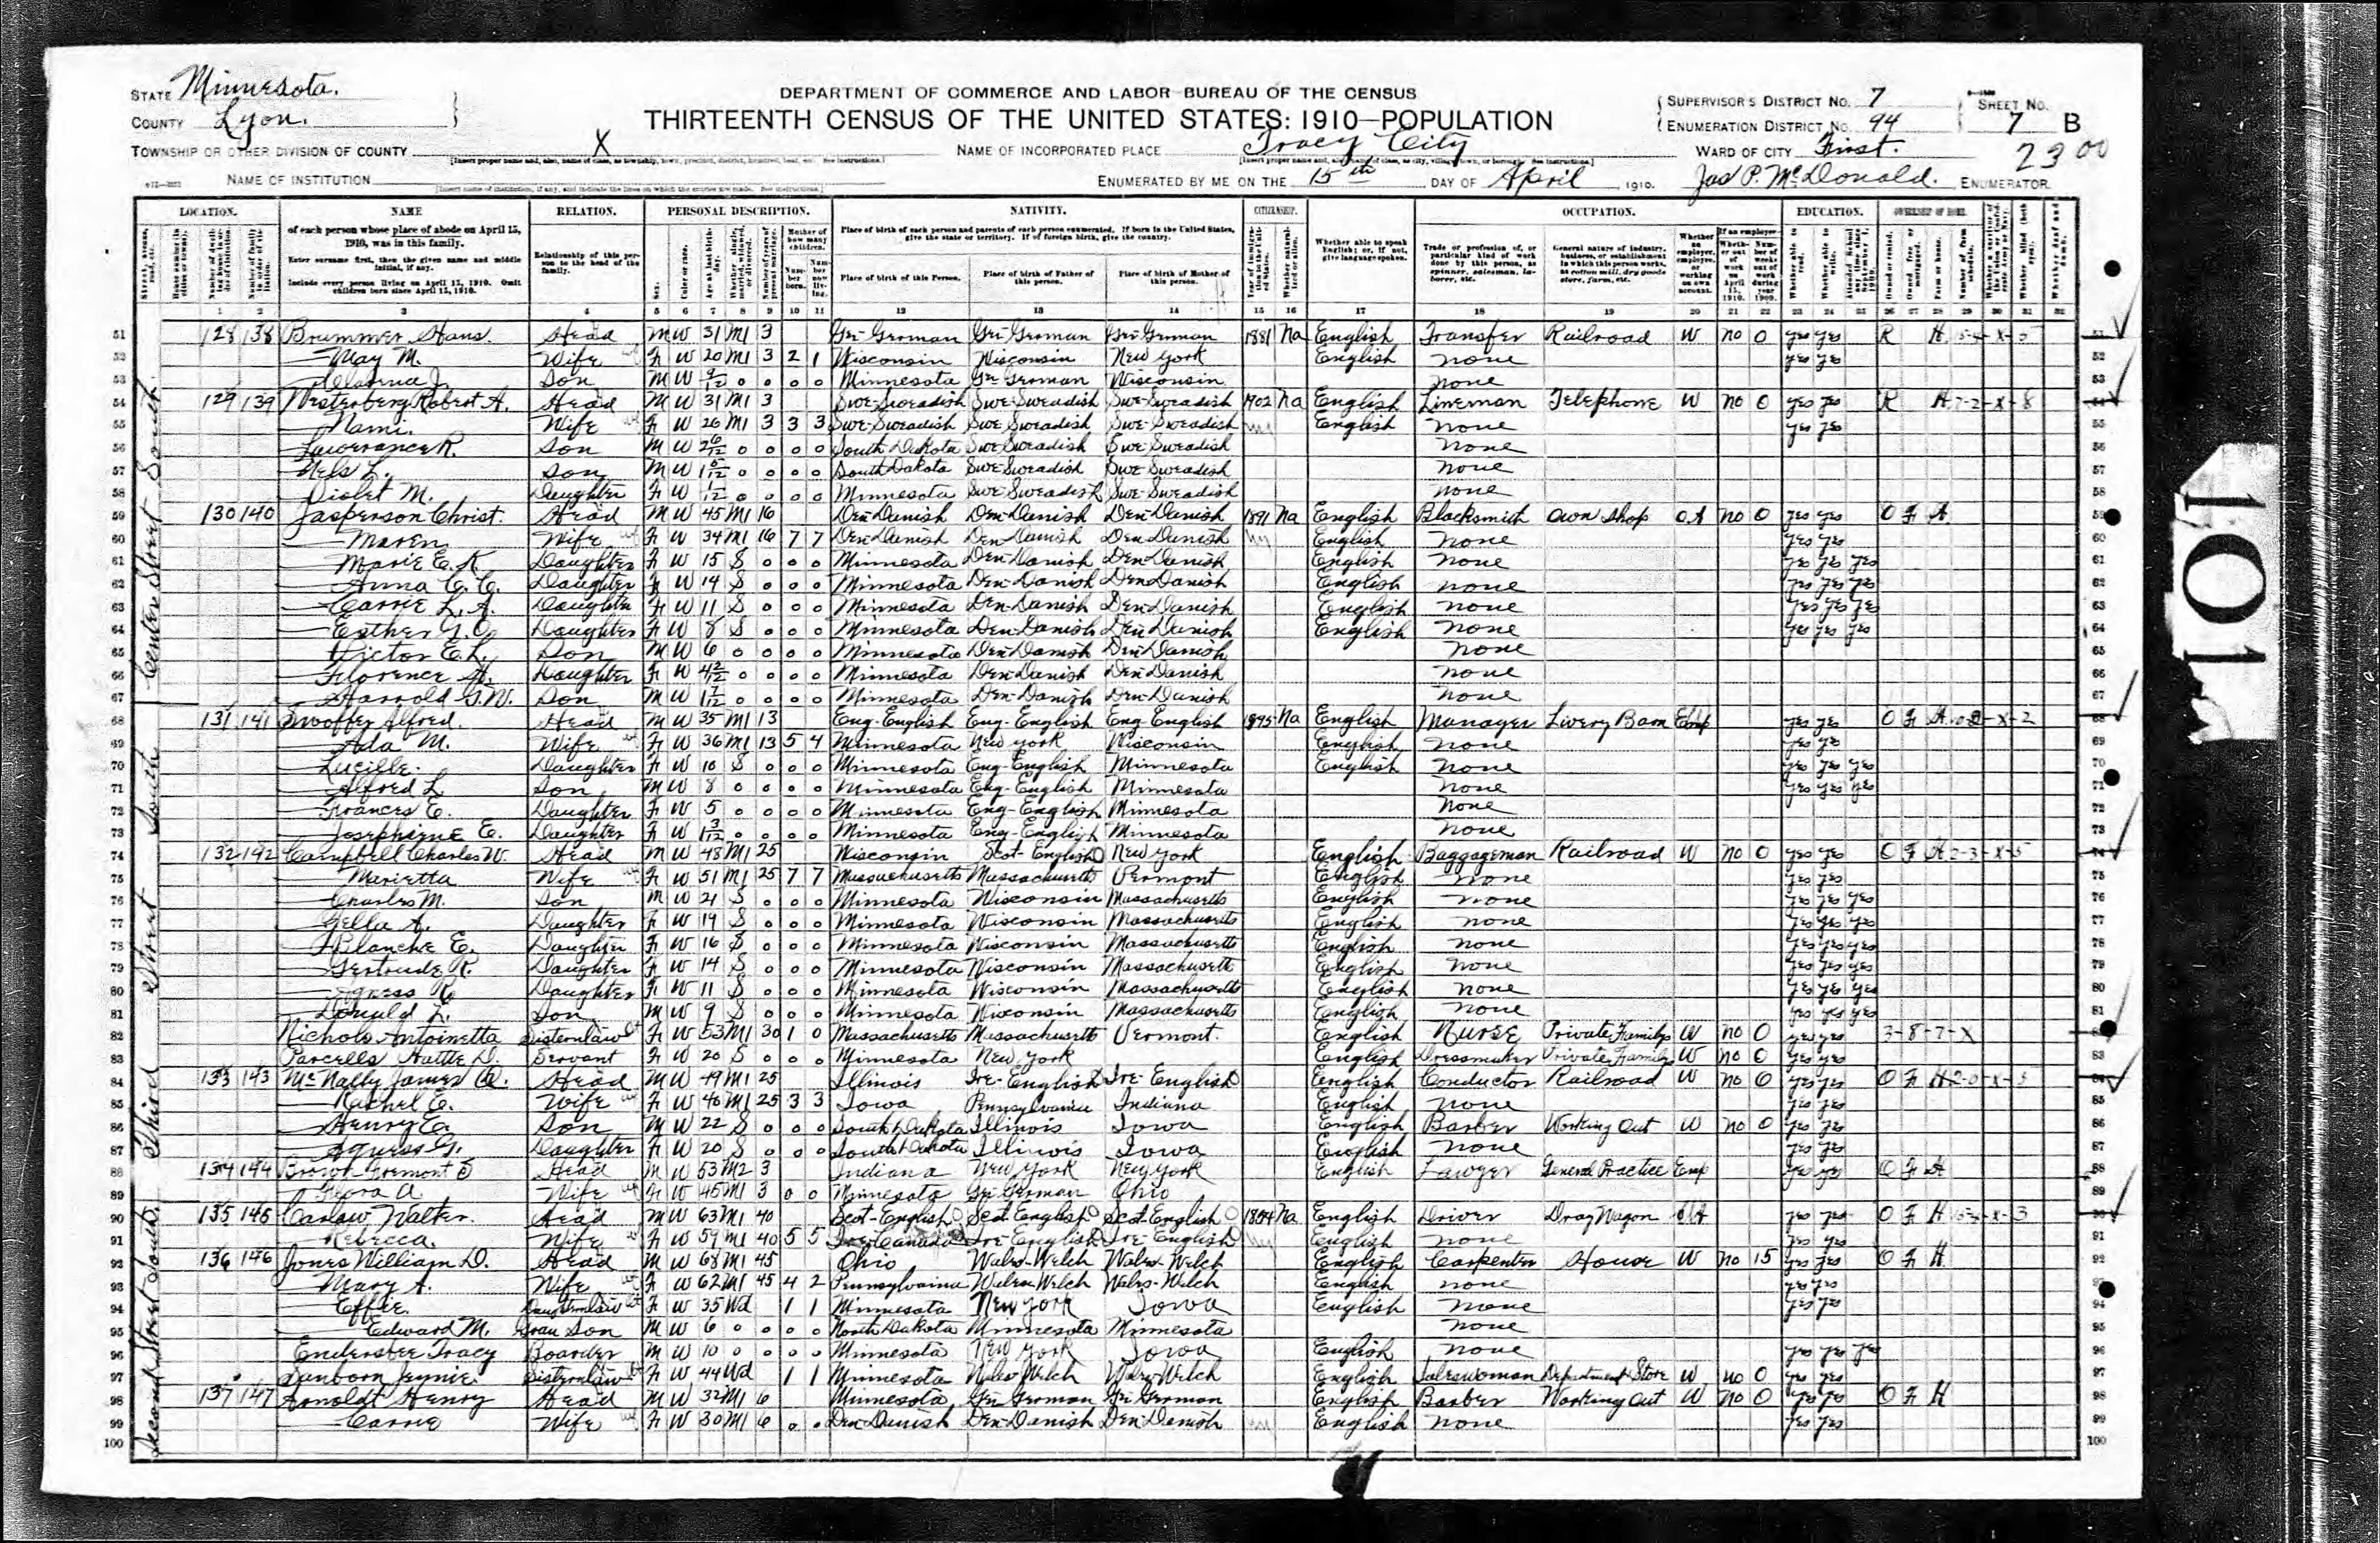 STATE Minnesota.
COUNTY Lyon.
TOWNSHIP OR OTHER DIVISION OF COUNTY X
NAME OF INSTITUTION
DEPARTMENT OF COMMERCE AND LABOR—BUREAU OF THE CENSUS
THIRTEENTH CENSUS OF THE UNITED STATES: 1910—POPULATION
NAME OF INCORPORATED PLACE Tracy City
ENUMERATED BY ME ON THE 15th DAY OF April, 1910.
SUPERVISOR'S DISTRICT No. 7
ENUMERATION DISTRICT No. 94
SHEET No. 7 B
WARD OF CITY First.
23 00
Jas P. McDonald. ENUMERATOR.
LOCATION. NAME RELATION. PERSONAL DESCRIPTION. NATIVITY. CITIZENSHIP. OCCUPATION. EDUCATION. OWNERSHIP OF HOME.
of each person whose place of abode on April 15, 1910, was in this family.
Enter surname first, then the given name and middle initial, if any.
Include every person living on April 15, 1910. Omit children born since April 15, 1910.
Relationship of this person to the head of the family.
Place of birth of each person and parents of each person enumerated. If born in the United States, give the state or territory. If of foreign birth, give the country.
Place of birth of this Person. Place of birth of Father of this person. Place of birth of Mother of this person.
Whether able to speak English; or, if not, give language spoken.
Trade or profession of, or particular kind of work done by this person, as spinner, salesman, laborer, etc.
General nature of industry, business, or establishment in which this person works, as cotton mill, dry goods store, farm, etc.
1 2 3 4 5 6 7 8 9 10 11 12 13 14 15 16 17 18 19 20 21 22 23 24 25 26 27 28 29 30 31 32
Center Street South
Third Street South
Second Street South
51 128 138 Brummer Hans. Head M W 31 M1 3 Ger German Ger German Ger German 1881 Na English Transfer Railroad W no 0 yes yes R H 51
52 May M. Wife F W 20 M1 3 2 1 Wisconsin Wisconsin New York English none yes yes 52
53 Son M W 9/12 0 0 0 0 Minnesota Ger German Wisconsin none 53
54 129 139 Westerberg Robert A. Head M W 31 M1 3 Swe-Sweadish Swe-Sweadish Swe-Sweadish 1902 Na English Lineman Telephone W no 0 yes yes R H 7-2-X-8 54
55 Nami. Wife F W 26 M1 3 3 3 Swe-Sweadish Swe Sweadish Swe-Sweadish English none yes yes 55
56 Lawerance R. Son M W 2 6/12 0 0 0 0 South Dakota Swe Sweadish Swe Sweadish none 56
57 Nels L. Son M W 1 5/12 0 0 0 0 South Dakota Swe Sweadish Swe Sweadish none 57
58 Violet M. Daughter F W 1/12 0 0 0 0 Minnesota Swe Sweadish Swe Sweadish none 58
59 130 140 Jasperson Christ. Head M W 45 M1 16 Den Danish Den-Danish Den Danish 1891 Na English Blacksmith Own Shop OA no 0 yes yes O F H 59
60 Maren Wife F W 34 M1 16 7 7 Den Danish Den Danish Den Danish English none yes yes 60
61 Marie E. K. Daughter F W 15 S 0 0 0 Minnesota Den Danish Den-Danish English none yes yes yes 61
62 Anna C. C. Daughter F W 14 S 0 0 0 Minnesota Den-Danish Den Danish English none yes yes yes 62
63 Carrie L. A. Daughter F W 11 S 0 0 0 Minnesota Den-Danish Den Danish English none yes yes yes 63
64 Esther Daughter F W 8 S 0 0 0 Minnesota Den Danish Den Danish English none yes yes yes 64
65 Victor E. L. Son M W 6 0 0 0 0 Minnesota Den Danish Den Danish none 65
66 Florence Daughter F W 4 2/12 0 0 0 0 Minnesota Den Danish Den Danish none 66
67 Harrold G. W. Son M W 1 7/12 0 0 0 0 Minnesota Den-Danish Den-Danish none 67
68 131 141 Swoffer Alfred. Head M W 35 M1 13 Eng-English Eng-English Eng English 1895 Na English Manager Livery Barn Emp yes yes O F 68
69 Ada M. Wife F W 36 M1 13 5 4 Minnesota New York Wisconsin English none yes yes 69
70 Lucille. Daughter F W 10 S 0 0 0 Minnesota Eng-English Minnesota English none yes yes yes 70
71 Alfred L Son M W 8 0 0 0 0 Minnesota Eng-English Minnesota none yes yes yes 71
72 Frances E. Daughter F W 5 0 0 0 0 Minnesota Eng-English Minnesota none 72
73 Josephayne E. Daughter F W 1 3/12 0 0 0 0 Minnesota Eng-English Minnesota none 73
74 132 142 Campbell Charles W. Head M W 48 M1 25 Wisconsin Scot-English New York English Baggageman Railroad W no 0 yes yes O F H 2-3-X-5 74
75 Marietta Wife F W 51 M1 25 7 7 Massachusetts Massachusetts Vermont English none yes yes 75
76 Charles M. Son M W 21 S 0 0 0 Minnesota Wisconsin Massachusetts English none yes yes yes 76
77 Zella A. Daughter F W 19 S 0 0 0 Minnesota Wisconsin Massachusetts English none yes yes yes 77
78 Blanche E. Daughter F W 16 S 0 0 0 Minnesota Wisconsin Massachusetts English none yes yes yes 78
79 Gertrude R. Daughter F W 14 S 0 0 0 Minnesota Wisconsin Massachusetts English none yes yes yes 79
80 Agness R. Daughter F W 11 S 0 0 0 Minnesota Wisconsin Massachusetts English none yes yes yes 80
81 Donald L. Son M W 9 S 0 0 0 Minnesota Wisconsin Massachusetts English none yes yes yes 81
82 Nichols Antoinetta Sisternlaw F W 53 M1 30 1 0 Massachusetts Massachusetts Vermont. English Nurse Private Familys W no 0 yes yes 3-8-7-X
83 Parcells Hattie D. Servant F W 20 S 0 0 0 Minnesota New York English Dressmaker Private Family W no 0 yes yes 83
84 133 143 McNally James A. Head M W 49 M1 25 Illinois Ire-English Ire-English English Conductor Railroad W no 0 yes yes O F H 2-0-X-5 84
85 Rachel E. Wife F W 40 M1 25 3 3 Iowa Pennsylvania Indiana English none yes yes 85
86 Henry E. Son M W 22 S 0 0 0 South Dakota Illinois Iowa English Barber Working Out W no 0 yes yes 86
87 Agness G. Daughter F W 20 S 0 0 0 South Dakota Illinois Iowa English none yes yes 87
88 134 144 Brown Fremont S Head M W 53 M2 3 Indiana New York New York English Lawyer General Practice Emp yes yes O F H 88
89 Flora A Wife F W 45 M1 3 0 0 Minnesota Ger German Ohio 89
90 135 145 Carlaw Walter. Head M W 63 M1 40 Scot-English Scot English Scot-English 1864 Na English Driver Dray Wagon OA yes yes O F H 90
91 Rebecca. Wife F W 59 M1 40 5 5 Ire English Ire English English none yes yes 91
92 136 146 Jones William D. Head M W 68 M1 45 Ohio Wales-Welch Wales-Welch English Carpenter House W no 15 yes yes O F H 92
93 Mary A. Wife F W 62 M1 45 4 2 Pennsylvaina Wales Welch Wales-Welch English none yes yes
94 Effie. Daughternlaw F W 35 Wd 1 1 Minnesota New York Iowa English none yes yes 94
95 Edward M. Gran Son M W 6 0 0 0 0 North Dakota Minnesota Minnesota none 95
96 Endersbee Tracy Boarder M W 10 0 0 0 0 Minnesota New York Iowa English none yes yes yes 96
97 Sanborn Jennie Sisternlaw F W 44 Wd 1 1 Minnesota Wales Welch Wales Welch English Saleswoman Department Store W no 0 yes yes 97
98 137 147 Arnoldt Henry Head M W 32 M1 6 Minnesota Ger German Ger German English Barber Working Out W no 0 yes yes O F H 98
99 Carrie Wife F W 30 M1 6 0 0 Den Danish Den Danish Den Danish English none yes yes 99
100 100
101